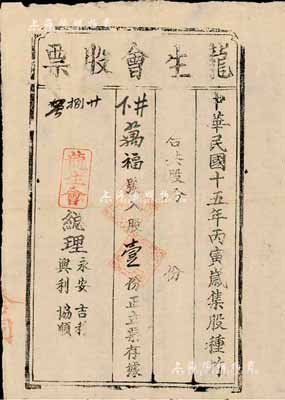 龍生會股票
中華民國十五年丙寅歲集股種
合共股分 份
萬福號入股壹份正立票存據
廿捌號
龍生會
總理
永安 吉利
興利 協順